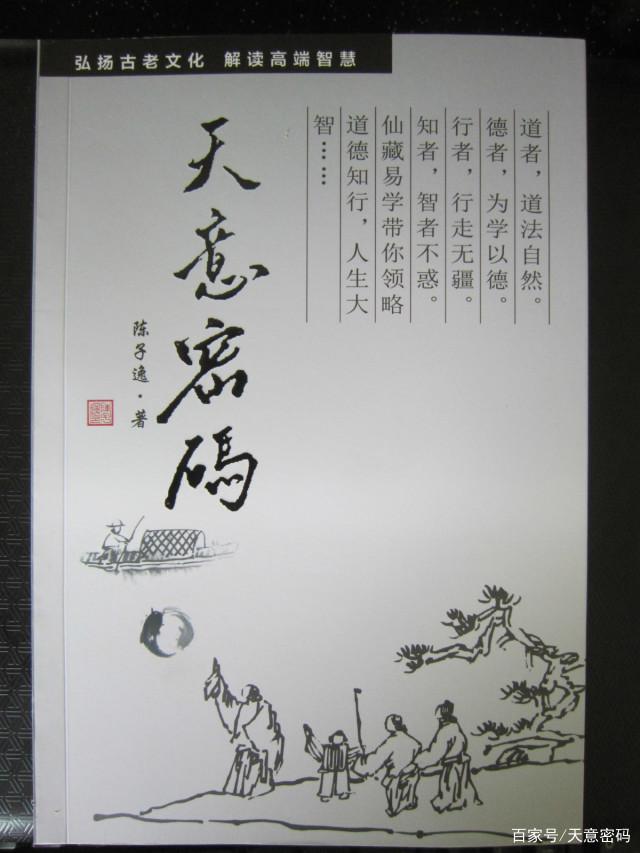 弘扬古老文化 解读高端智慧
道者，道法自然。
德者，为学以德。
行者，行走无疆。
知者，智者不惑。
仙藏易学带你领略
道德知行，人生大
智……
天意密码
陈子逸·著
百家号/天意密码